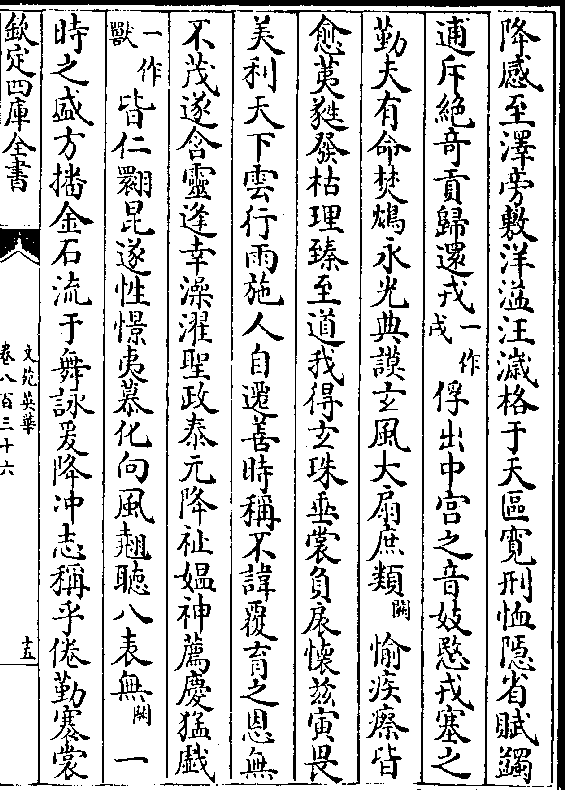 降感至澤旁敷洋溢汪濊格于天區寛刑恤隠省賦蠲
逋斥絶竒貢歸還戎一作戍俘出中宫之音妓愍戎塞之
勤夫有命焚鴆永光典謨玄風大扇庶類闕愉疾瘵皆
愈荑甤發枯理臻至道我得玄珠垂裳負扆懷兹寅畏
美利天下雲行雨施人自遷善時稱不諱覆育之恩無
不茂遂含靈逢幸澡濯聖政泰元降祉媪神薦慶猛戯
一作獸皆仁翾昆遂性憬夷慕化向風翹聽八表無闕一
時之盛方播金石流于舞詠爰降冲志稱乎倦勤褰裳
欽定四庫全書
文苑英華
卷八百三十六
十五